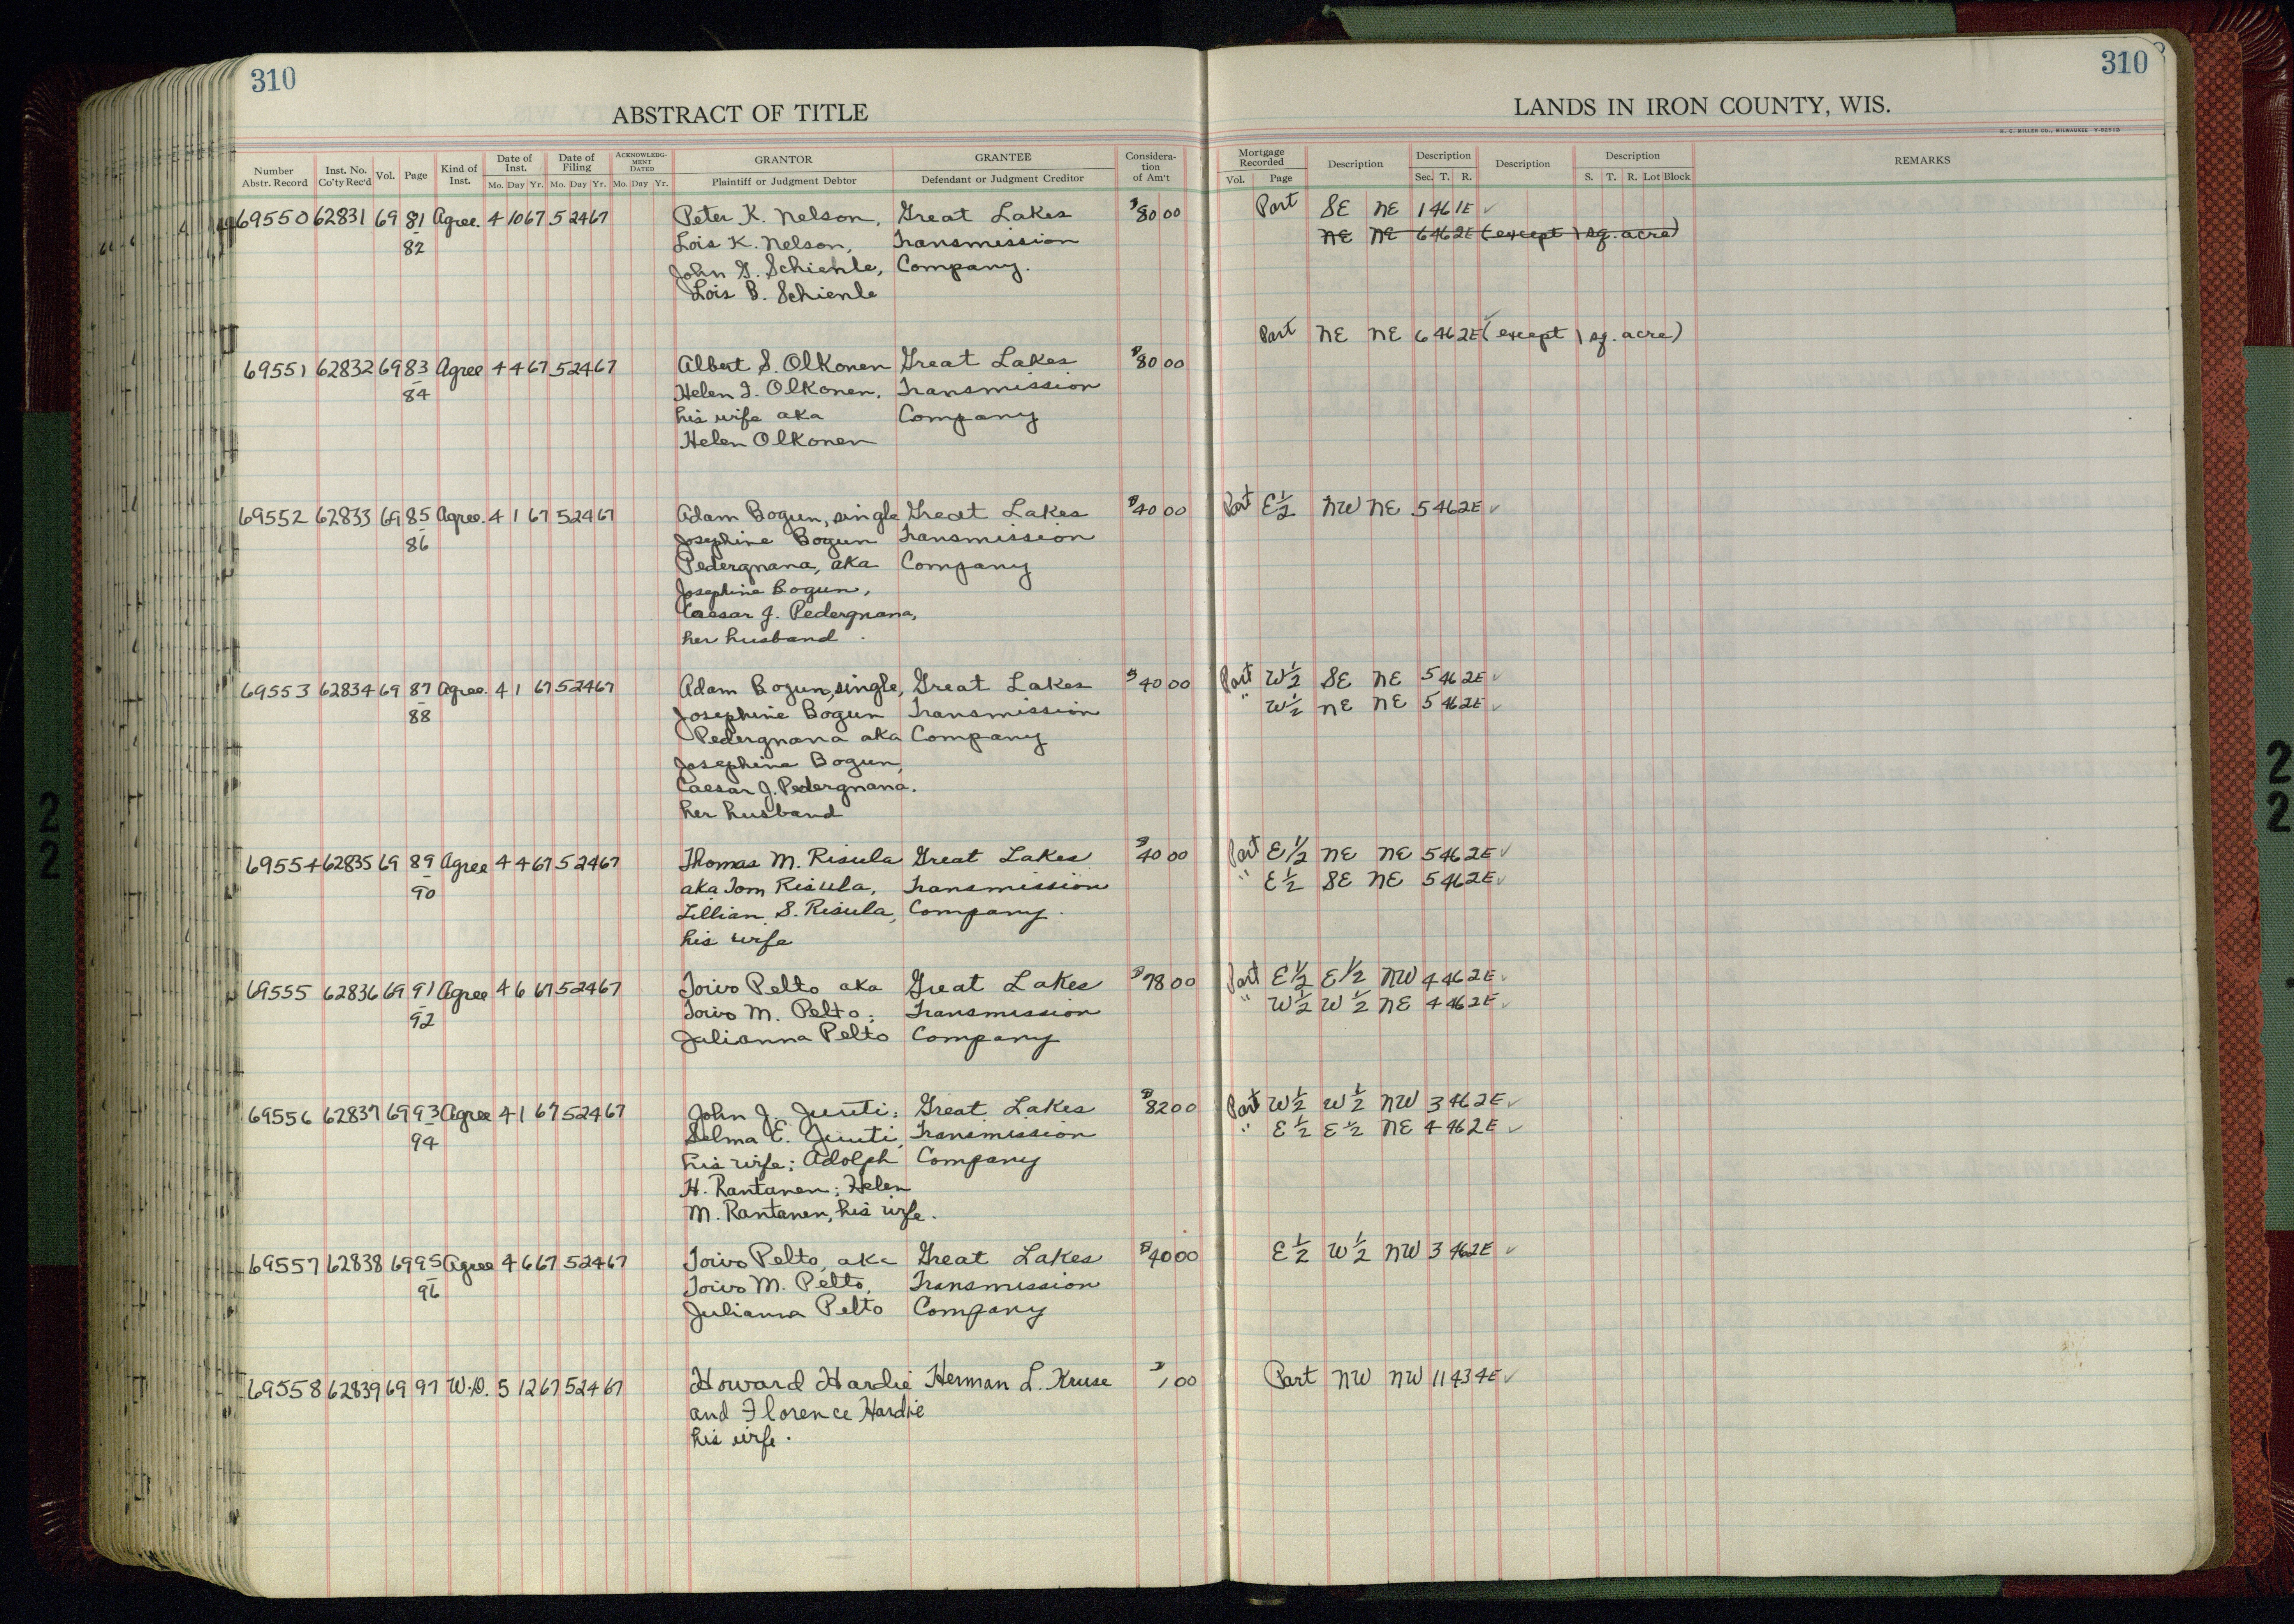 310
310
ABSTRACT OF TITLE
LANDS IN IRON COUNTY, WIS.
H. C. MILLER CO., MILWAUKEE
Number Abstr. Record Inst. No. Co'ty Rec'd Vol. Page Kind of Inst. Date of Inst. Mo. Day Yr. Date of Filing Mo. Day Yr. ACKNOWLEDGMENT DATED Mo. Day Yr. GRANTOR Plaintiff or Judgment Debtor GRANTEE Defendant or Judgment Creditor Consideration of Am't Mortgage Recorded Vol. Page Description Description Sec. T. R. Description Description S. T. R. Lot Block REMARKS
69550 62831 69 81 Agree. 4 10 67 5 24 67 Peter K. Nelson, Great Lakes $80 00 Part SE NE 1 46 1E ✓
82 Lois K. Nelson, Transmission NE NE 6 46 2E (except 1 sq. acre)
John G. Schienle, Company.
Lois B. Schienle
Part NE NE 6 46 2E (except 1 sq. acre) ✓
69551 62832 69 83 Agree 4 4 67 5 24 67 Albert S. Olkonen Great Lakes $80 00
84 Helen I. Olkonen, Transmission
his wife aka Company
Helen Olkonen
69552 62833 69 85 Agree. 4 1 67 5 24 67 Adam Bogun, single Great Lakes $40 00 Part E½ NW NE 5 46 2E ✓
86 Josephine Bogun Transmission
Pedergnana, aka Company
Josephine Bogun,
Caesar J. Pedergnana,
her husband
69553 62834 69 87 Agree. 4 1 67 5 24 67 Adam Bogun, single, Great Lakes $40 00 Part W½ SE NE 5 46 2E ✓
88 Josephine Bogun Transmission " W½ NE NE 5 46 2E ✓
Pedergnana aka Company
Josephine Bogun,
Caesar J. Pedergnana.
her husband
69554 62835 69 89 Agree 4 4 67 5 24 67 Thomas M. Risula Great Lakes $40 00 Part E½ NE NE 5 46 2E ✓
90 aka Tom Risula, Transmission " E½ SE NE 5 46 2E ✓
Lillian S. Risula, Company.
his wife
69555 62836 69 91 Agree 4 6 67 5 24 67 Toivo Pelto aka Great Lakes $78 00 Part E½ E½ NW 4 46 2E ✓
92 Toivo M. Pelto; Transmission " W½ W½ NE 4 46 2E ✓
Julianna Pelto Company
69556 62837 69 93 Agree 4 1 67 5 24 67 John J. Juuti; Great Lakes $82 00 Part W½ W½ NW 3 46 2E ✓
94 Selma E. Juuti, Transmission " E½ E½ NE 4 46 2E ✓
his wife; Adolph Company
H. Rantanen; Helen
M. Rantanen, his wife.
69557 62838 69 95 Agree 4 6 67 5 24 67 Toivo Pelto, aka Great Lakes $40 00 E½ W½ NW 3 46 2E ✓
96 Toivo M. Pelto, Transmission
Julianna Pelto Company
69558 62839 69 97 W.D. 5 12 67 5 24 67 Howard Hardie Herman L. Kruse $1 00 Part NW NW 11 43 4E ✓
and Florence Hardie
his wife.
22
22